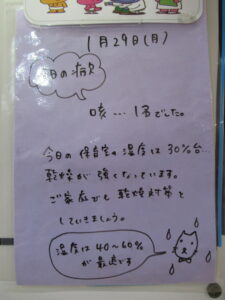 1月29日(月)
今日の病欠
咳… 1名でした。
今日の保育室の湿度は30%台…
乾燥が強くなっています。
ご家庭でも乾燥対策を
していきましょう。
湿度は40~60%
が最適です